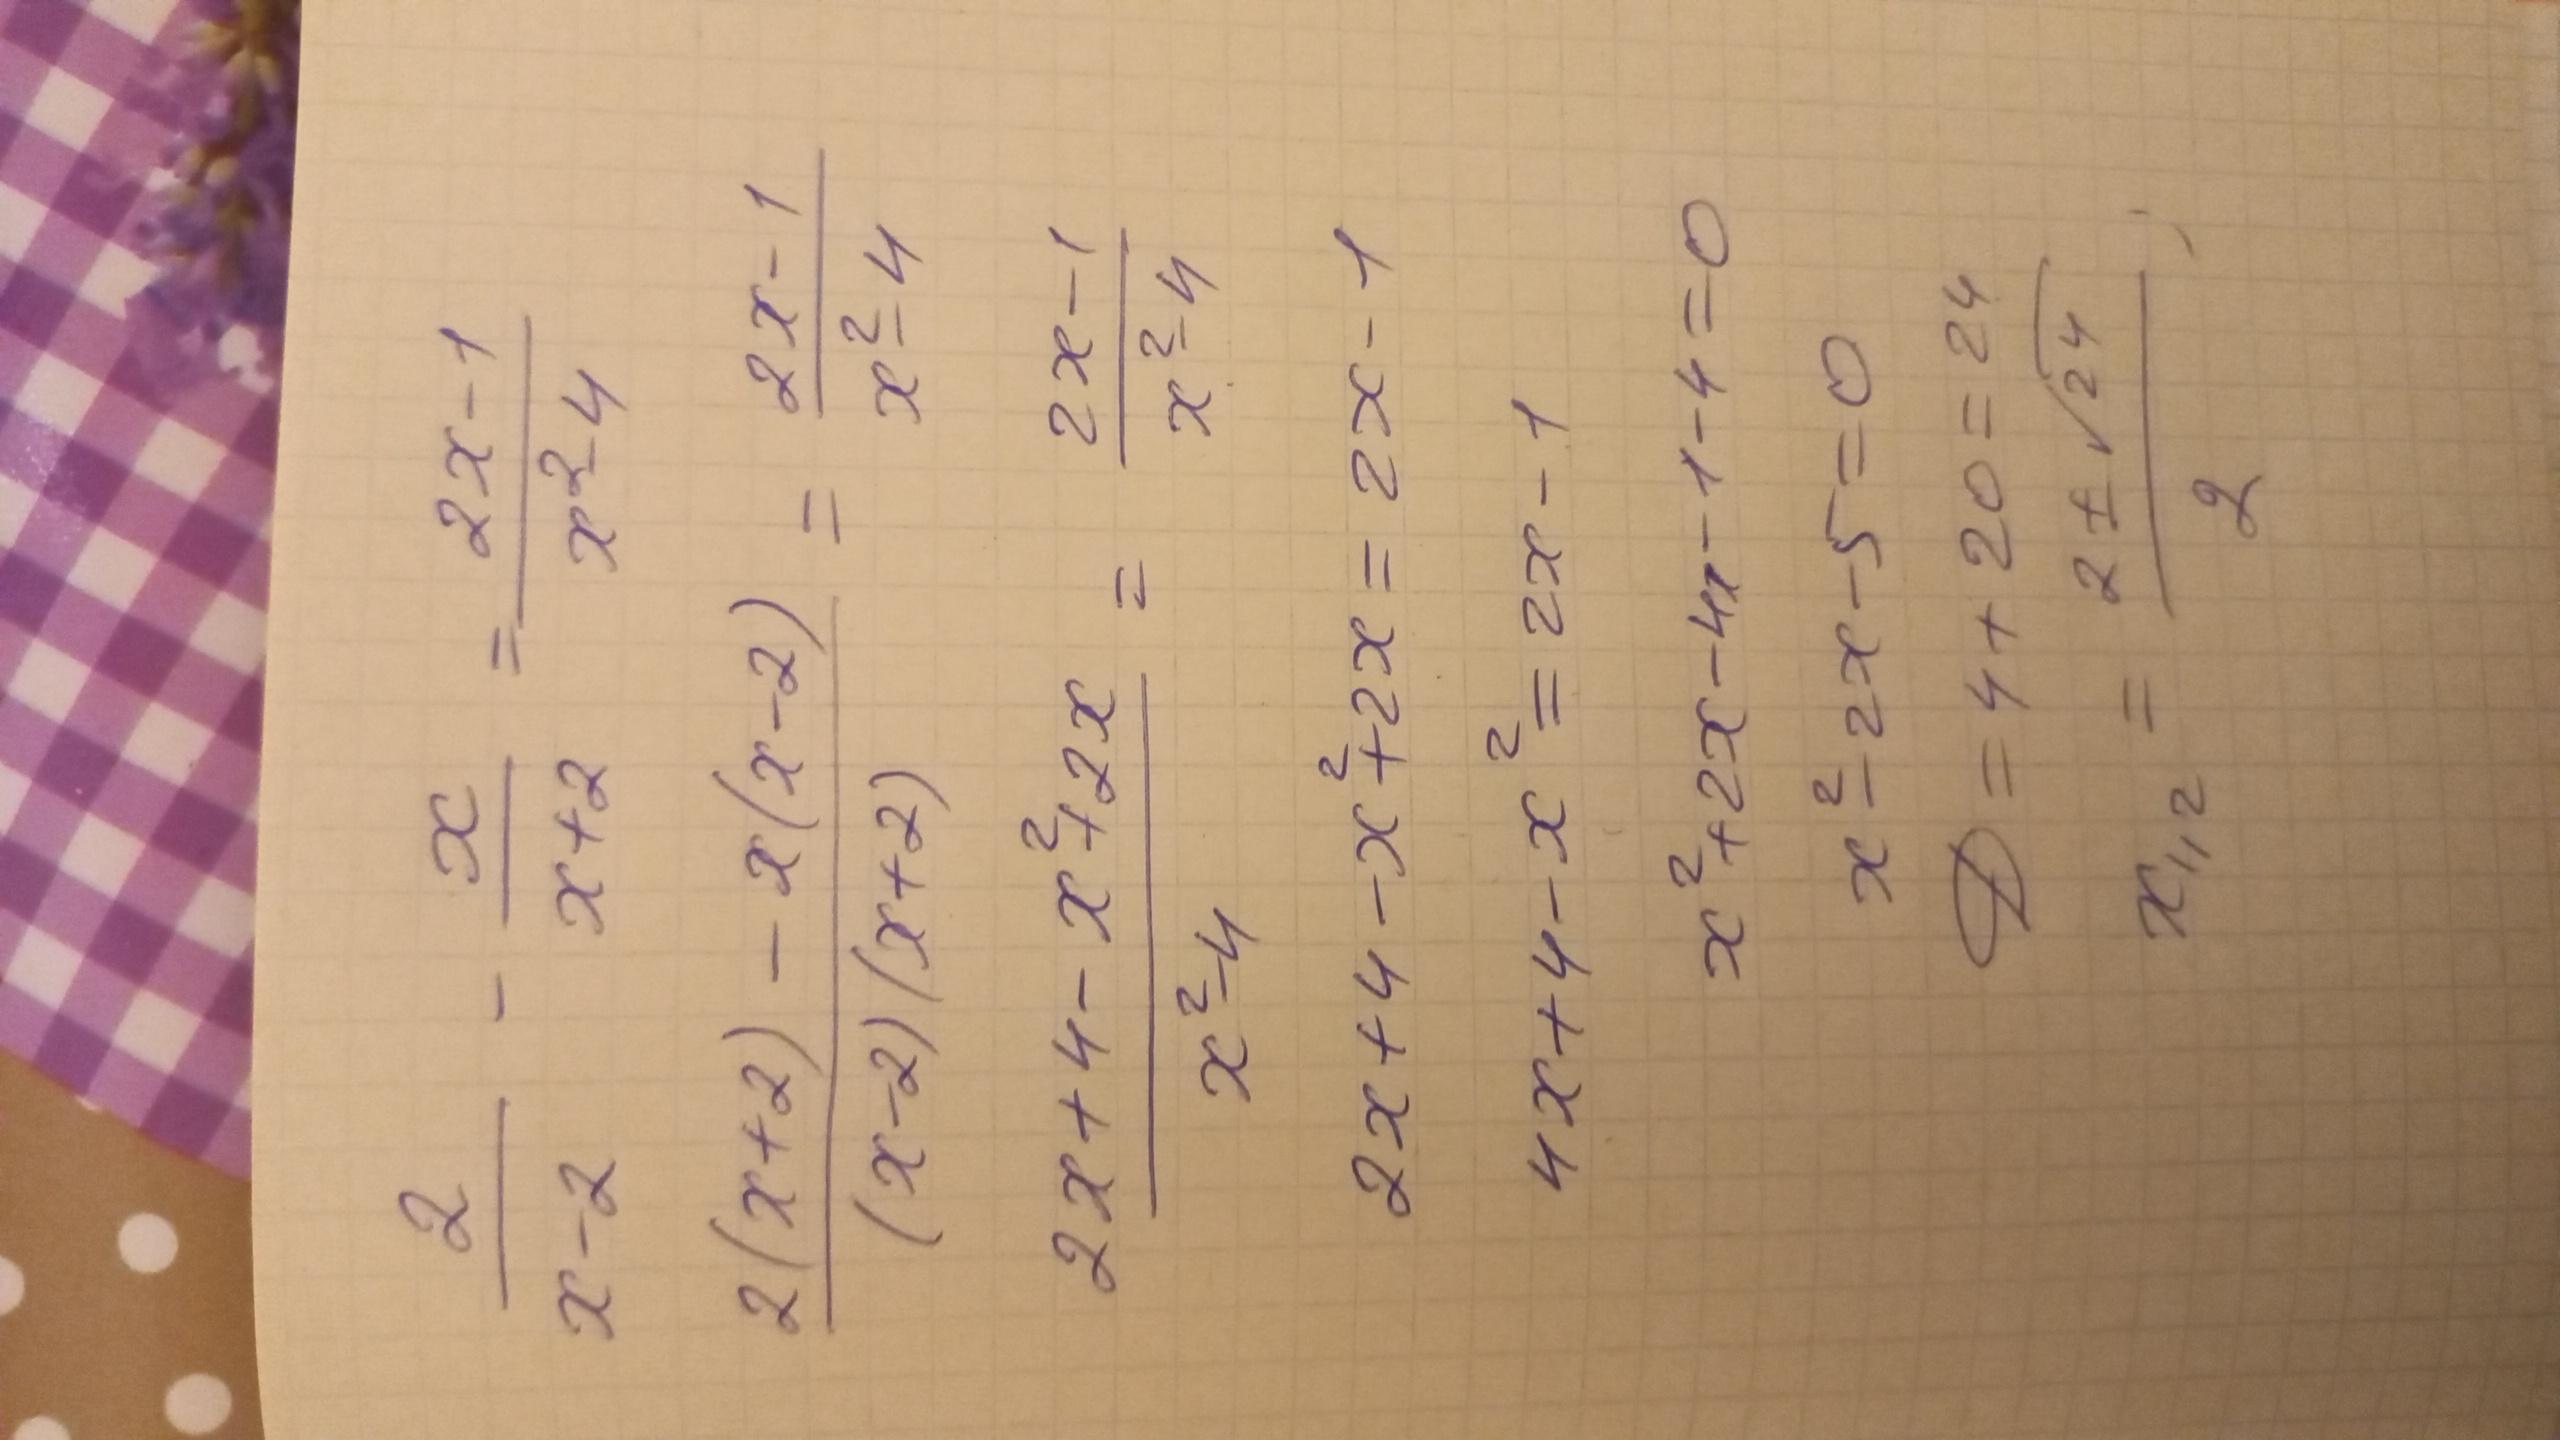 2/(x-2) - x/(x+2) = (2x-1)/(x²-4)
(2(x+2) - x(x-2))/((x-2)(x+2)) = (2x-1)/(x²-4)
(2x+4-x²+2x)/(x²-4) = (2x-1)/(x²-4)
2x+4-x²+2x=2x-1
4x+4-x²=2x-1
x²+2x-4x-1-4=0
x²-2x-5=0
D=4+20=24
x₁,₂ = (2±√24)/2,